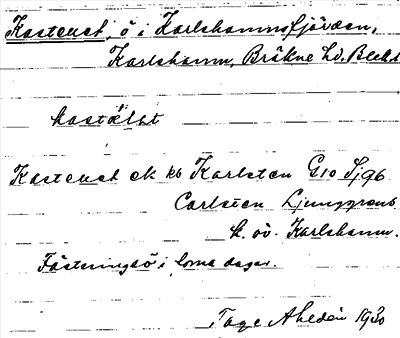 Kastellet, ö i Karlshamnsfjärden,
Karlshamn, Bräkne hd. Blek.
kastä̀l̀et
Kastellet ek kb Karlsten G10 Sj 96
Carlsten Ljunggrens
k. öv. Karlshamn.
Fästningsö i forna dagar.
Tage Ahldén 1930